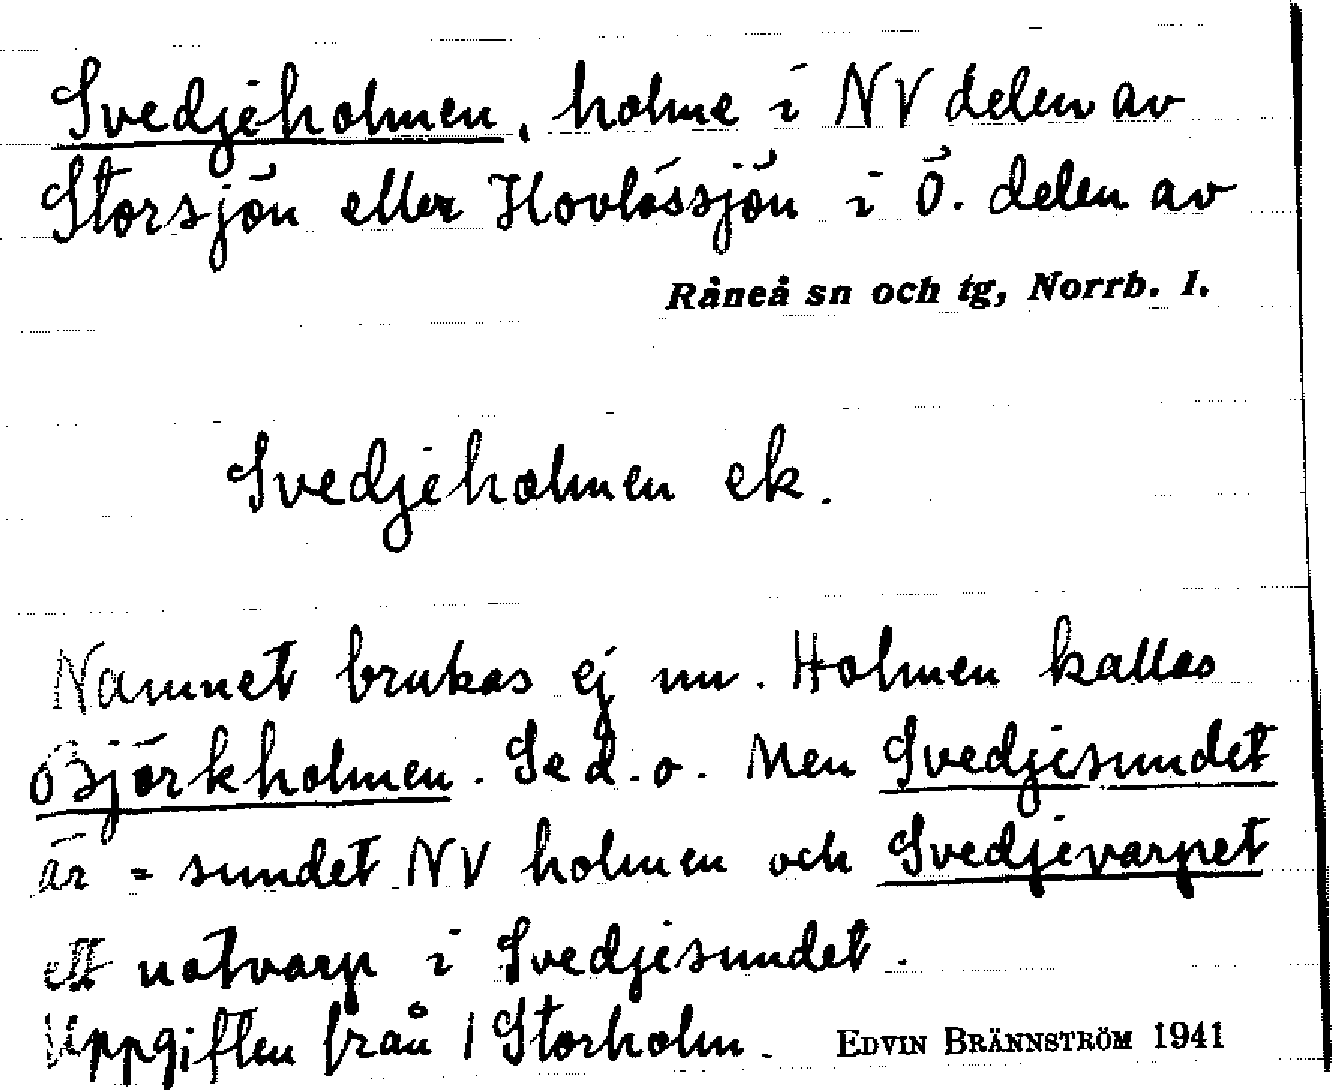 Svedjeholmen, holme i NV delen av
Storsjön eller Hovlössjön i Ö. delen av
Råneå sn och tg, Norrb. l.
Svedjeholmen ek.
Namnet brukas ej nu. Holmen kallas
Björkholmen. Se d.o. Men Svedjesundet
är = sundet NV holmen och Svedjevarpet
ett notvarp i Svedjesundet.
Uppgiften från 1 Storholm.
EDVIN BRÄNNSTRÖM 1941